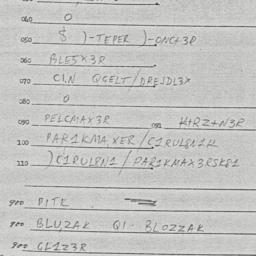 040 O
050 8 )-TEPER )-ONC+3R
060 BLE5X3R
070 CLN QGELT/DRESDL3X
080 O
090 PELCMAX3R 091 K+RZ+N3R
100 PAR1KMAXER/C1RUL8N1K
110 )C1RUL8N1/PAR1KMAX3RSK81
900 PITK
900 BLUZAK Q1-BLOZZAK
900 GL1Z3R